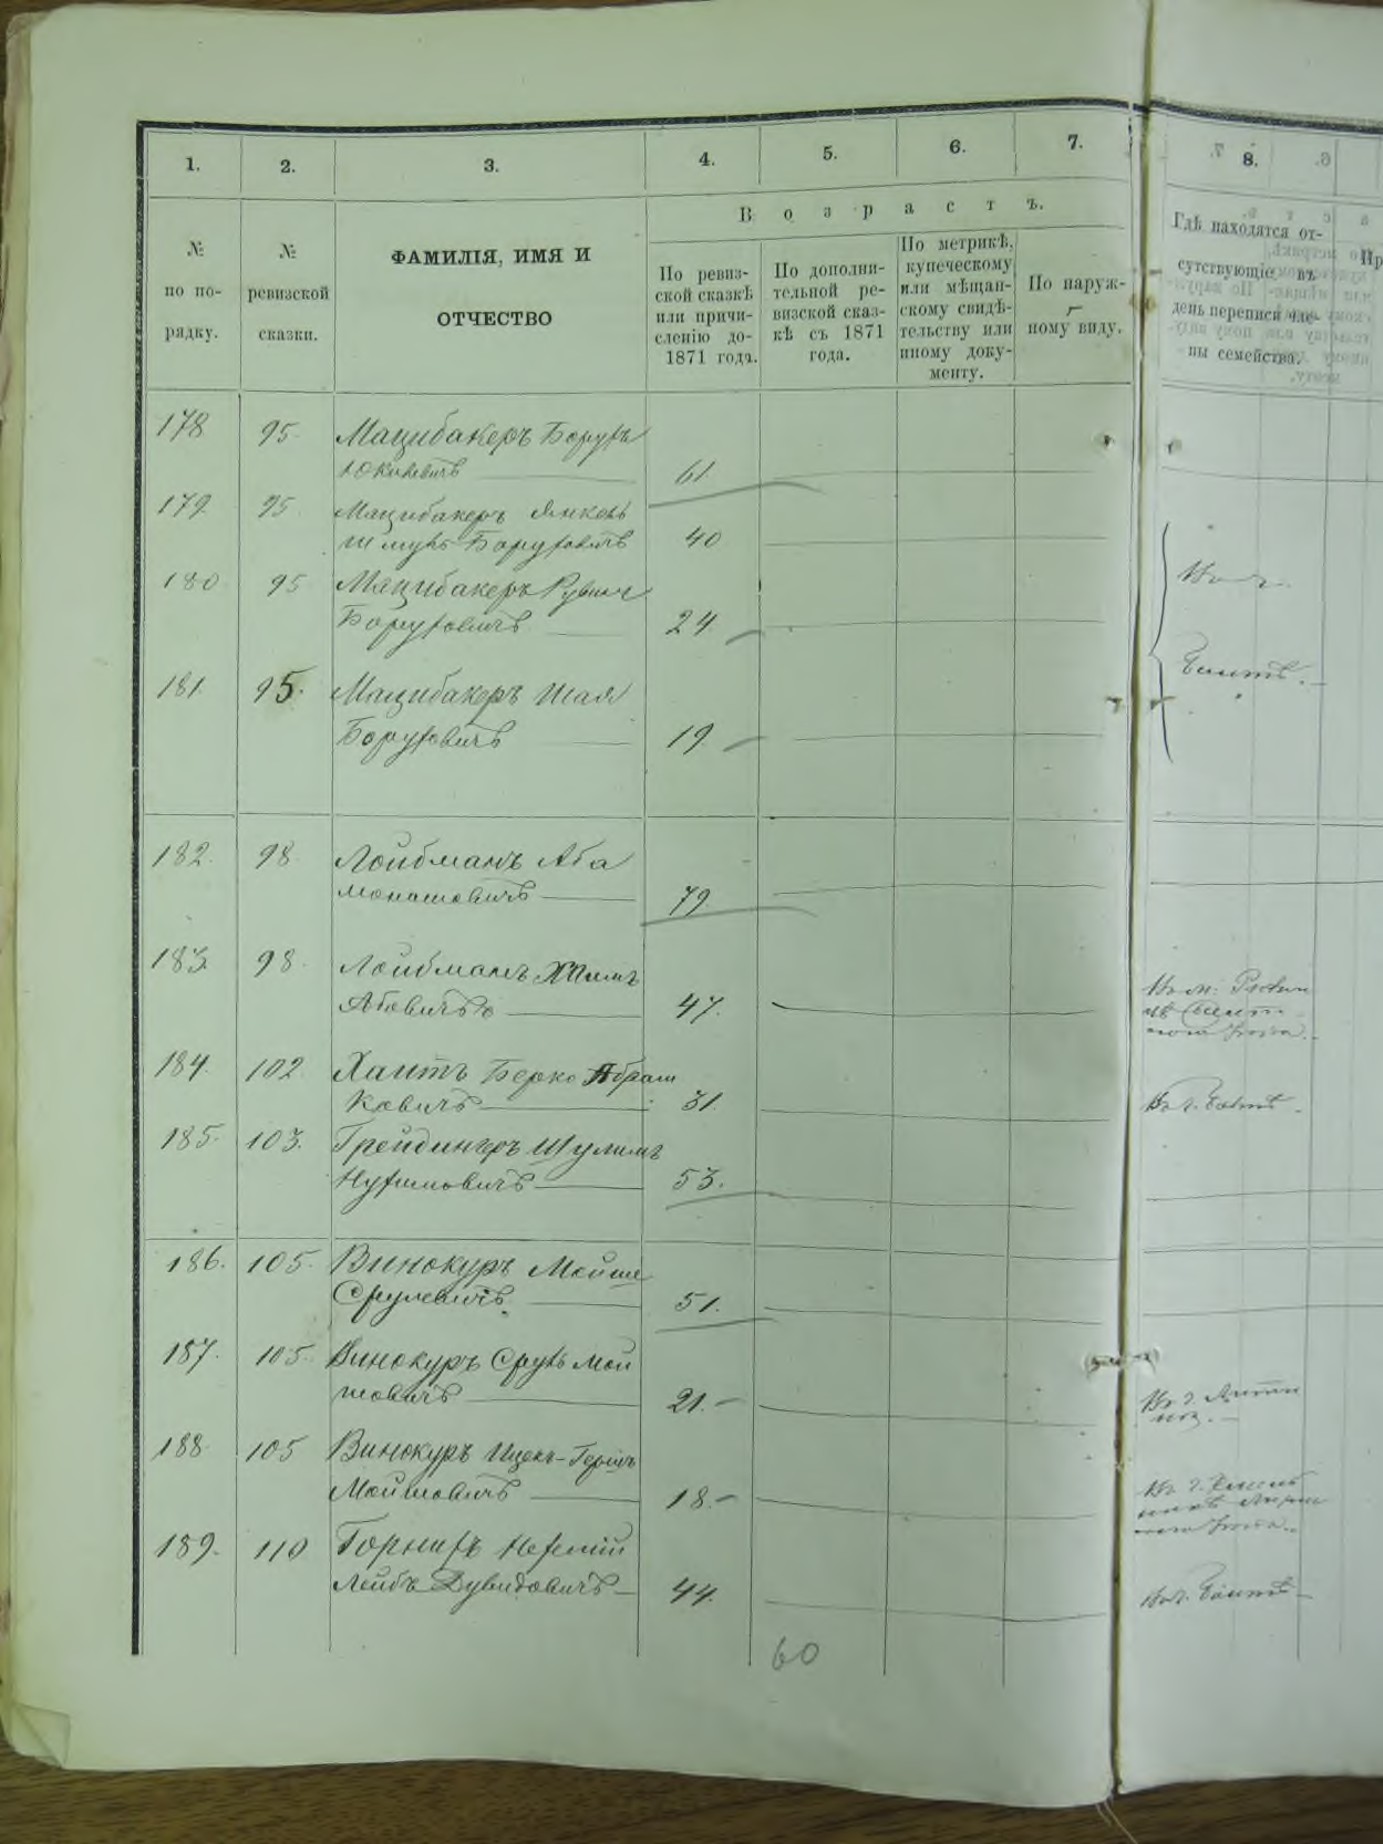 1. 2. 3. 4. 5. 6. 7. 8.
В о з р а с т ъ.
№ по по- рядку.
№ ревизской сказки.
ФАМИЛІЯ, ИМЯ И
ОТЧЕСТВО
По ревиз-
ской сказкѣ
или причи-
сленію до-
1871 года.
По дополни-
тельной ре-
визской сказ-
кѣ съ 1871
года.
По метрикѣ,
купеческому
или мѣщан-
скому свидѣ-
тельству или
иному доку-
менту.
По наруж-
ному виду.
Гдѣ находятся от-
сутствующіе въ
день переписи чле-
ны семейства.
178 95 Мацибакеръ Борухъ
61
179 95 Мацибакеръ Янкель
Шмуль Боруховичъ 40
180 95 Мацибакеръ Рувин
Боруховичъ 24
181. 95. Мацибакеръ Шая
Боруховичъ 19
Бантѣ.
182. 98 Лойбманъ Аба
Монашовичъ 79
183. 98. Лойбманъ Хаимъ
Абовичъ 47.
184. 102 Хаитъ Берко Абрам
ковичъ 31.
185. 103. Грейдингеръ Шулимъ
Нухимовичъ 53.
186. 105. Винокуръ Мойше
Срулевичъ 51.
187. 105. Винокуръ Сруль Мой
шовичъ 21.
188 105 Винокуръ Ицекъ-Гершъ
Мойшовичъ 18.
189. 110 Горникъ
Лейбъ Дувидовичъ 44.
60